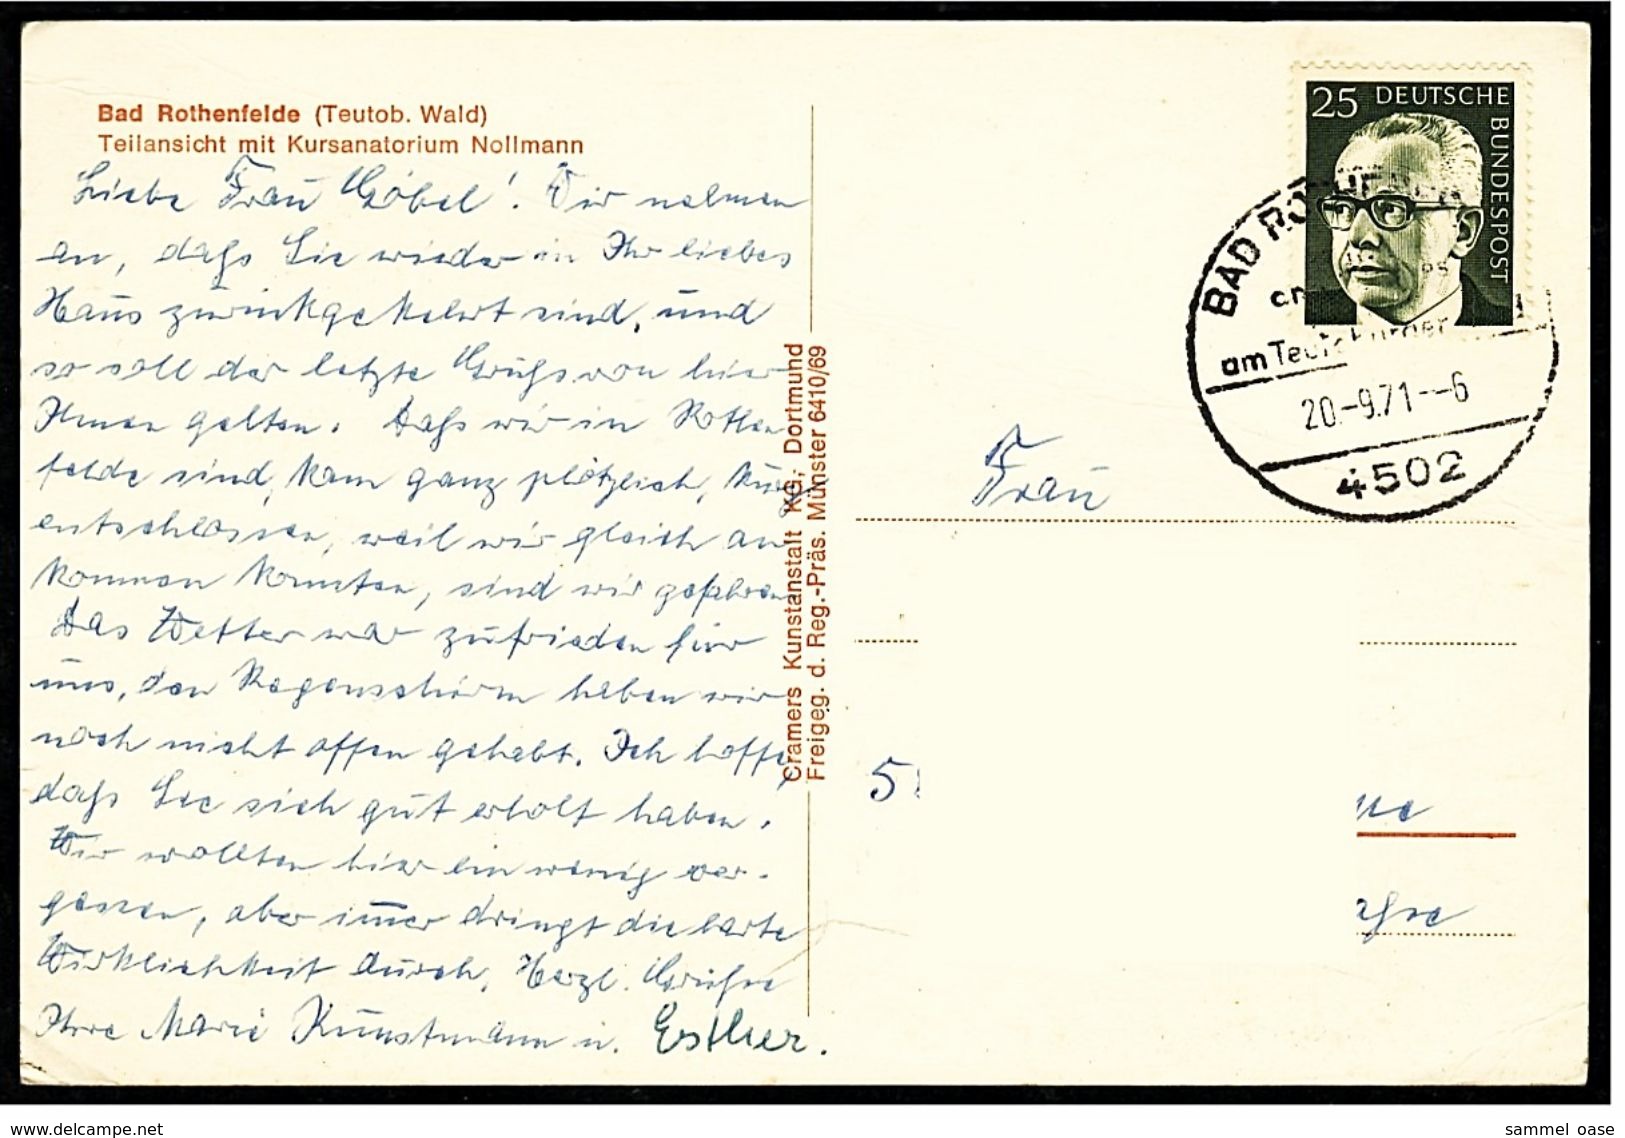 Bad Rothenfelde (Teutob. Wald)
Teilansicht mit Kursanatorium Nollmann
Liebe Frau Göbel! Wir nehmen
an, daß Sie wieder in Ihr liebes
Haus zurückgekehrt sind, und
so soll der letzte Gruß von hier
Ihnen gelten. Daß wir in Rothen
felde sind, kam ganz plötzlich, kurz
entschlossen, weil wir gleich an
kommen konnten, sind wir gefahren
Das Wetter war zufrieden für
uns, den Regenschirm haben wir
noch nicht offen gehabt. Ich hoffe,
daß Sie sich gut erholt haben.
Wir wollten hier ein wenig ver-
gessen, aber immer dringt die harte
Wirklichkeit durch. Herzl. Grüße
Ihre Marie Kunstmann u. Esther.
Cramers Kunstanstalt KG., Dortmund
Freigeg. d. Reg.-Präs. Münster 6410/69
25 DEUTSCHE
BUNDESPOST
BAD RO
am Teutoburger
20.-9.71--6
4502
Frau
5
www.delcampe.net
sammel oase